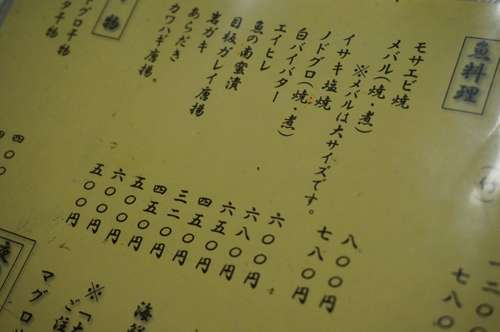 魚料理
モサエビ焼
メバル(焼・煮)
※メバルは大サイズです。
イサキ塩焼
ノドグロ(焼・煮)
白バイバター
エイヒレ
魚の南蛮漬
目板ガレイ唐揚
岩ガキ
あらだき
カワハギ唐揚。
八〇〇円
七八〇円
六〇〇円
六八〇円
六五〇円
四五〇円
三二〇円
四五〇円
六〇〇円
五〇〇円
物
グロ干物
タ干物
四〇〇
一二〇〇
七八〇
海鮮
マグロ